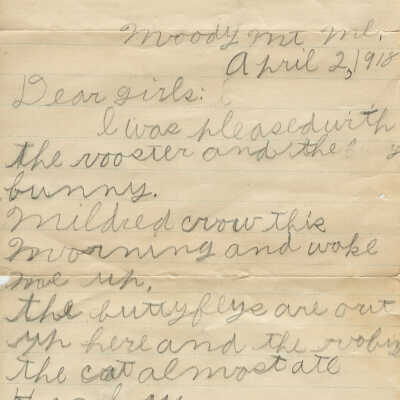 Moody Mt Me.
April 2, 1918
Dear girls:
I was pleased with
the rooster and the
bunny.
Mildred crow this
morning and woke
me up,
the buttyflys are out
up here and the robin
the cat almost ate